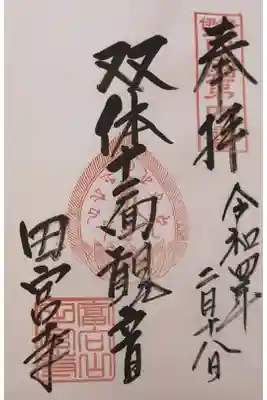 奉拝
令和四年
二月十八日
双体十一面観音
田宮寺